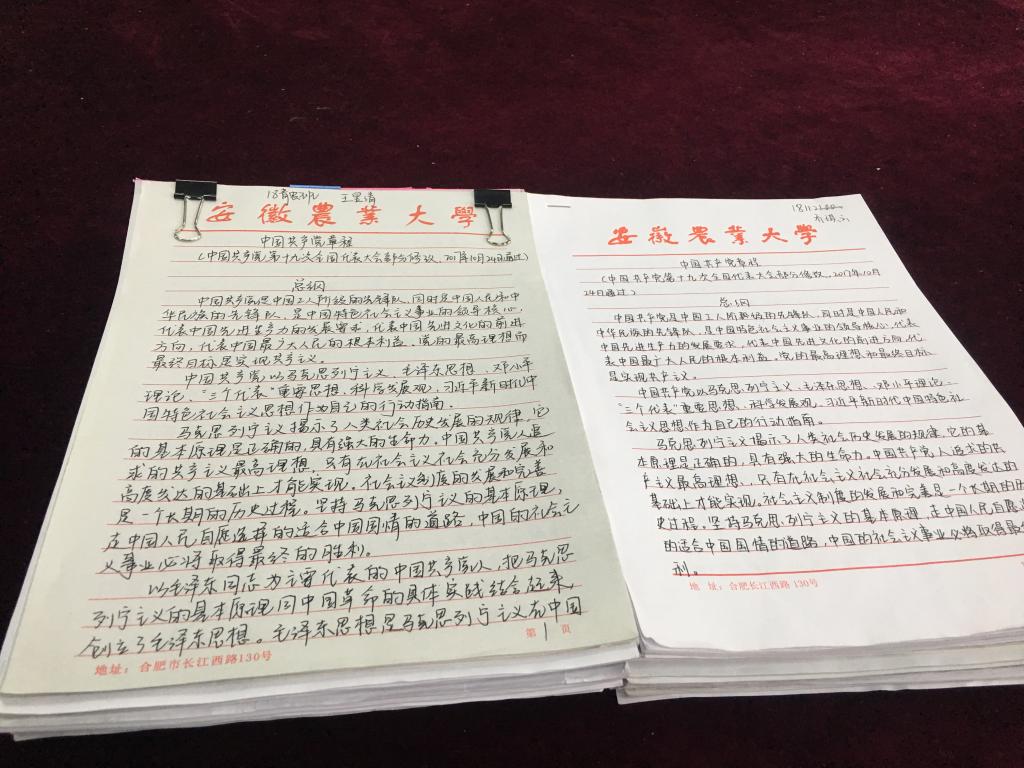 18青农班 王星清
安徽農業大學
中国共产党章程
(中国共产党第十九次全国代表大会部分修改,2017年10月24日通过)
总纲
中国共产党是中国工人阶级的先锋队,同时是中国人民和中
华民族的先锋队,是中国特色社会主义事业的领导核心,
代表中国先进生产力的发展要求,代表中国先进文化的前进
方向,代表中国最广大人民的根本利益。党的最高理想和
最终目标是实现共产主义。
中国共产党以马克思列宁主义、毛泽东思想、邓小平
理论、“三个代表”重要思想、科学发展观、习近平新时代中
国特色社会主义思想作为自己的行动指南。
马克思列宁主义揭示了人类社会历史发展的规律,它
的基本原理是正确的,具有强大的生命力。中国共产党人追
求的共产主义最高理想,只有在社会主义社会充分发展和
高度发达的基础上才能实现。社会主义制度的发展和完善
是一个长期的历史过程。坚持马克思列宁主义的基本原理,
走中国人民自愿选择的适合中国国情的道路,中国的社会主
义事业必将取得最终的胜利。
以毛泽东同志为主要代表的中国共产党人,把马克思
列宁主义的基本原理同中国革命的具体实践结合起来,
创立了毛泽东思想。毛泽东思想是马克思列宁主义在中国
第 1 页
地址:合肥市长江西路130号
安徽農業大學
中国共产党章程
(中国共产党第十九次全国代表大会部分修改,2017年10月
24日通过)
总纲
中国共产党是中国工人阶级的先锋队,同时是中国人民和
中华民族的先锋队,是中国特色社会主义事业的领导核心,代表
中国先进生产力的发展要求,代表中国先进文化的前进方向,代
表中国最广大人民的根本利益。党的最高理想和最终目标
是实现共产主义。
中国共产党以马克思列宁主义、毛泽东思想、邓小平理论、
“三个代表”重要思想、科学发展观、习近平新时代中国特色社
会主义思想作为自己的行动指南。
马克思列宁主义揭示了人类社会历史发展的规律,它的基
本原理是正确的,具有强大的生命力。中国共产党人追求的共
产主义最高理想,只有在社会主义社会充分发展和高度发达的
基础上才能实现。社会主义制度的发展和完善是一个长期的历
史过程。坚持马克思列宁主义的基本原理,走中国人民自愿选择
的适合中国国情的道路,中国的社会主义事业必将取得最终的胜
利。
地 址:合肥长江西路130号